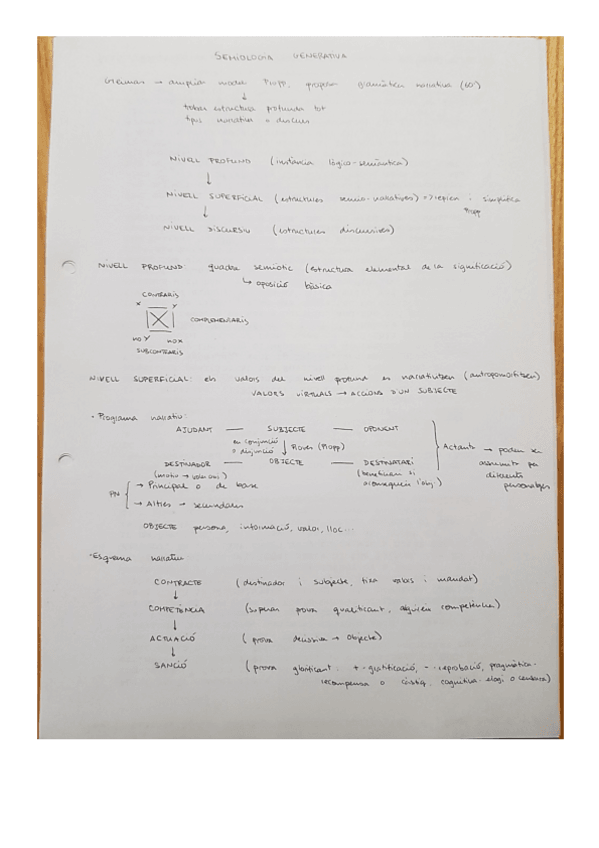 SEMIOLOGIA GENERATIVA
Greimas → ampliar model Propp, proposa gramàtica narrativa (60')
↓
trobar estructura profunda tot
tipus narrativa o discurs
NIVELL PROFUND (instància lògico-semàntica)
↓
NIVELL SUPERFICIAL (estructures semio-narratives) => i simplifica
Propp
↓
NIVELL DISCURSIU (estructures discursives)
NIVELL PROFUND: quadre semiòtic (estructura elemental de la significació)
↳ oposició bàsica
CONTRARIS
X Y
COMPLEMENTARIS
no Y no X
SUBCONTRARIS
NIVELL SUPERFICIAL: els valors del nivell profund es narrativitzen (antropomorfitzen)
VALORS VIRTUALS → ACCIONS D'UN SUBJECTE
- Programa narratiu:
AJUDANT — SUBJECTE — OPONENT
en conjunció
o disjunció ↓ Proves (Propp)
Actants → poden ser
assumits per
diferents
personatges
DESTINADOR — OBJECTE — DESTINATARI
(motiu → valors) (beneficiari si
aconsegueix l'obj)
PN → Principal o de base
→ Altres → secundaris
OBJECTE persona, informació, valor, lloc...
- Esquema narratiu
CONTRACTE (destinador i subjecte, fixa valors i mandat)
↓
COMPETÈNCIA (superar prova qualificant, adquireix competència)
↓
ACTUACIÓ (prova decisiva → objecte)
↓
SANCIÓ (prova glorificant: + -glorificació, - -reprobació, pragmàtica-
recompensa o càstig, cognitiva-elogi o censura)